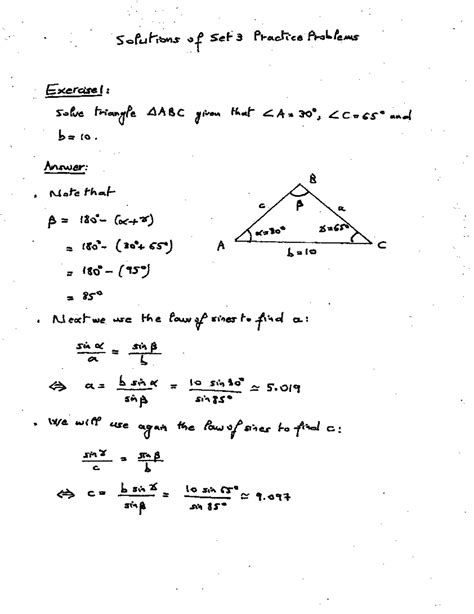 Solutions of Set 3 Practice Problems
Exercise 1:
Solve triangle ΔABC given that ∠A = 30°, ∠C = 65° and
b = 10.
Answer:
. Note that
β = 180° - (α+γ)
= 180° - (30°+65°)
= 180° - (95°)
= 85°
B
c
β
a
A
α=30°
γ=65°
C
b=10
. Next we use the law of sines to find a:
sin α / a = sin β / b
⇔ a = b sin α / sin β = 10 sin 30° / sin 85° ≃ 5.019
. We will use again the law of sines to find c:
sin γ / c = sin β / b
⇔ c = b sin γ / sin β = 10 sin 65° / sin 85° ≃ 9.097